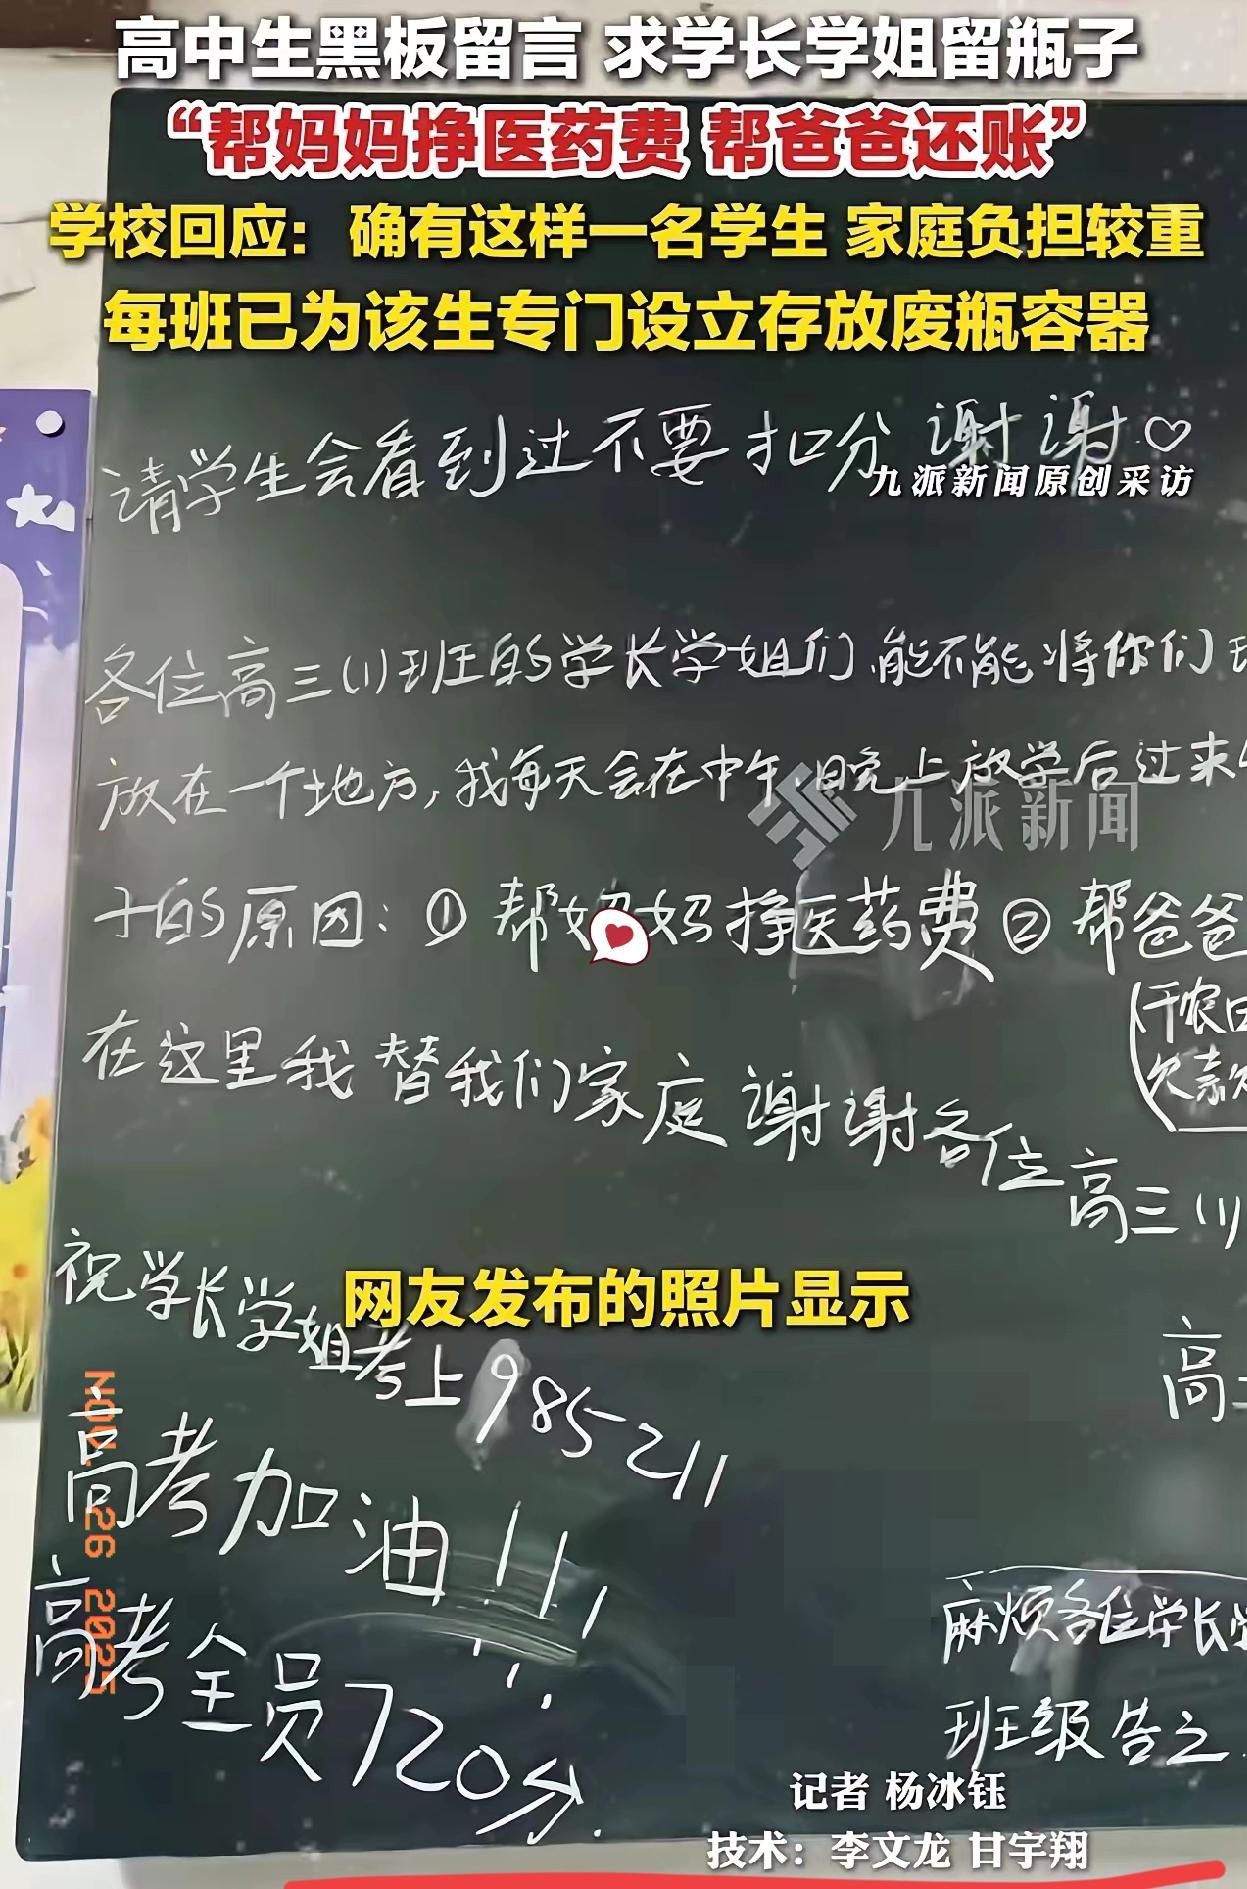 高中生黑板留言 求学长学姐留瓶子
“帮妈妈挣医药费 帮爸爸还账”
学校回应：确有这样一名学生 家庭负担较重
每班已为该生专门设立存放废瓶容器
请学生会看到过不要扣分 谢谢♡
九派新闻原创采访
各位高三(1)班的学长学姐们,能不能将你们
放在一个地方,我每天会在中午 晚上放学后过来
九派新闻
的原因：① 帮妈妈挣医药费 ② 帮爸爸
(干农
欠款
在这里我替我们家庭谢谢各位高三(1)
祝学长学姐考上985 211
网友发布的照片显示
高
高考加油!!!
高考全员720分.
NOV. 26 2025
麻烦各位学长
班级告之
记者 杨冰钰
技术：李文龙 甘宇翔